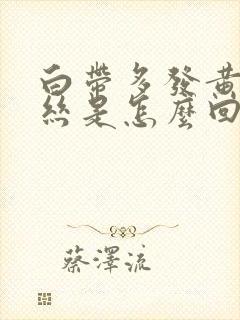 白帶多發黃
絲是怎麼回
蔡澤流